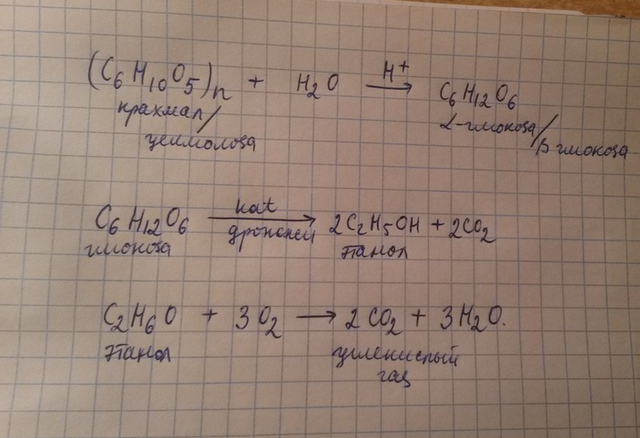 (C6H10O5)n + H2O —H+→ C6H12O6
крахмал/ α-глюкоза/
целлюлоза β-глюкоза
C6H12O6 —kat дрожжей→ 2C2H5OH + 2CO2
глюкоза этанол
C2H6O + 3O2 → 2CO2 + 3H2O.
этанол углекислый
газ